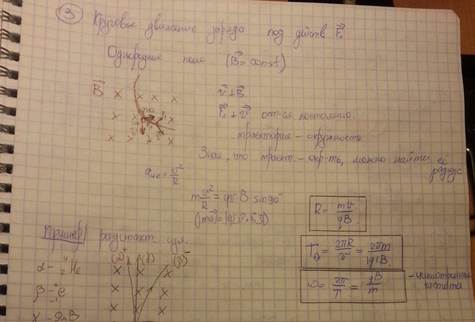 ③ Круговое движение заряда под действ F⃗л
Однородное поле (B⃗=const)
B⃗ × × × ×
v⃗ ⊥ B⃗
× × × ×
F⃗л ⊥ v⃗ постоянно
× × × ×
траектория - окружность
Зная, что траект. - окр-ть, можно найти её радиус
aцс = v²/R
m v²/R = qvB sin 90°
R = mv/qB
T = 2πR/v = 2πm/|q|B
ω = 2π/T = qB/m - циклотронная частота
Пример
(α) (γ) (β)
α - ⁴₂He
β - ⁰₋₁e